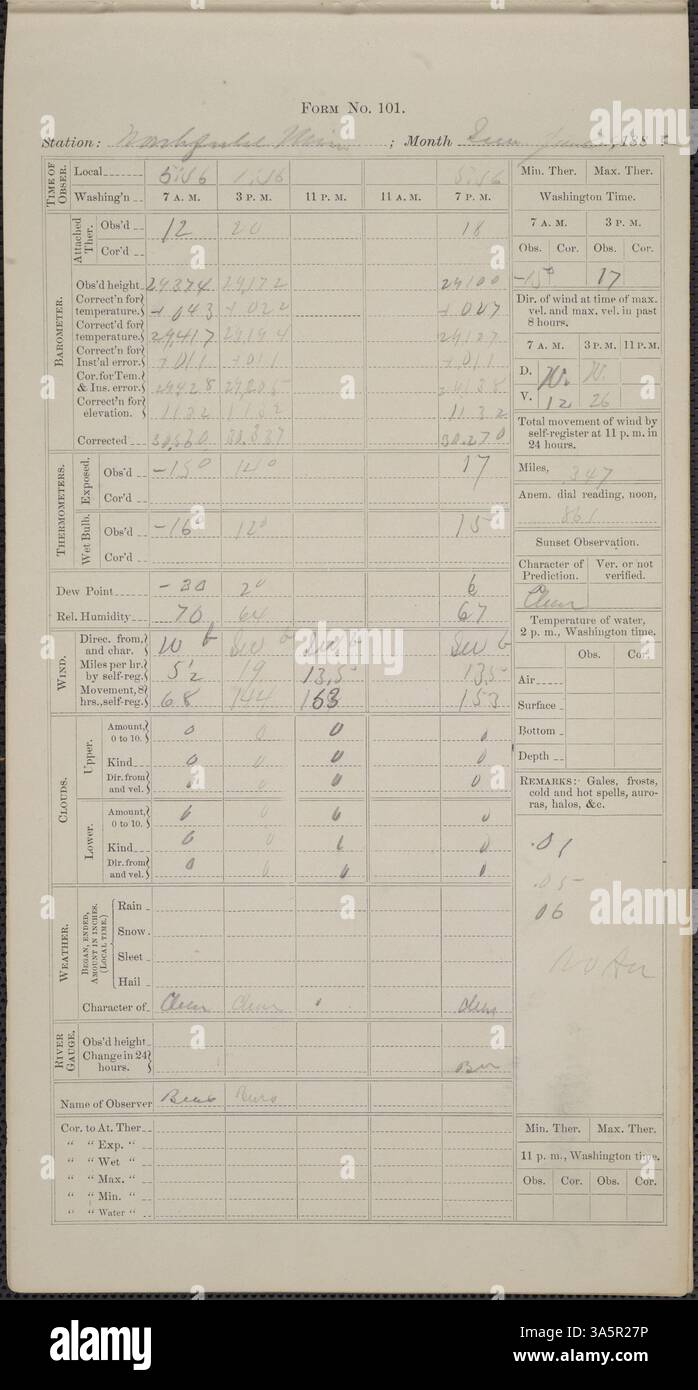 FORM NO. 101.
Station: ; Month , 188
TIME OF OBSER.
Local 5:56 5:56
Washing'n 7 A. M. 3 P. M. 11 P. M. 11 A. M. 7 P. M.
BAROMETER.
Attached Ther.
Obs'd 12 20 18
Cor'd
Obs'd height 29374 29172 29100
Correct'n for temperature. +043 +022 +027
Correct'd for temperature. 29417 29194 29127
Correct'n for Inst'al error. +011 +011 +011
Cor. for Tem. & Ins. error. 29428 29205 29138
Correct'n for elevation. 1132 1132 1132
Corrected 30.560 30.337 30.270
THERMOMETERS.
Exposed.
Obs'd -15° 14° 17
Cor'd
Wet Bulb.
Obs'd -16° 12° 15
Cor'd
Dew Point -30 2° 6
Rel. Humidity 70 64 67
WIND.
Direc. from, and char. W b SW b SW b
Miles per hr. by self-reg. 5½ 19 13.5 13.5
Movement, 8 hrs., self-reg. 68 144 153 153
CLOUDS.
Upper.
Amount, 0 to 10. 0 0 0 0
Kind 0 0 0 0
Dir. from and vel. 0 0 0 0
Lower.
Amount, 0 to 10. 0 0 0 0
Kind 0 0 0 0
Dir. from and vel. 0 0 0 0
WEATHER.
BEGAN, ENDED, AMOUNT IN INCHES. (LOCAL TIME.)
Rain
Snow
Sleet
Hail
Character of Clear Clear Clear
RIVER GAUGE.
Obs'd height
Change in 24 hours.
Name of Observer
Cor. to At. Ther
“ “ Exp. “
“ “ Wet “
“ “ Max. “
“ “ Min. “
“ “ Water “
Min. Ther. Max. Ther.
Washington Time.
7 A. M. 3 P. M.
Obs. Cor. Obs. Cor.
-15° 17
Dir. of wind at time of max. vel. and max. vel. in past 8 hours.
7 A. M. 3 P. M. 11 P. M.
D. W. W.
V. 12 26
Total movement of wind by self-register at 11 p. m. in 24 hours.
Miles, 347
Anem. dial reading, noon,
861
Sunset Observation.
Character of Prediction. Ver. or not verified.
Clear
Temperature of water, 2 p. m., Washington time.
Obs. Cor.
Air
Surface
Bottom
Depth
REMARKS: Gales, frosts, cold and hot spells, auroras, halos, &c.
.01
.05
06
Min. Ther. Max. Ther.
11 p. m., Washington time.
Obs. Cor. Obs. Cor.
alamy
Image ID: 3A5R27P
www.alamy.com